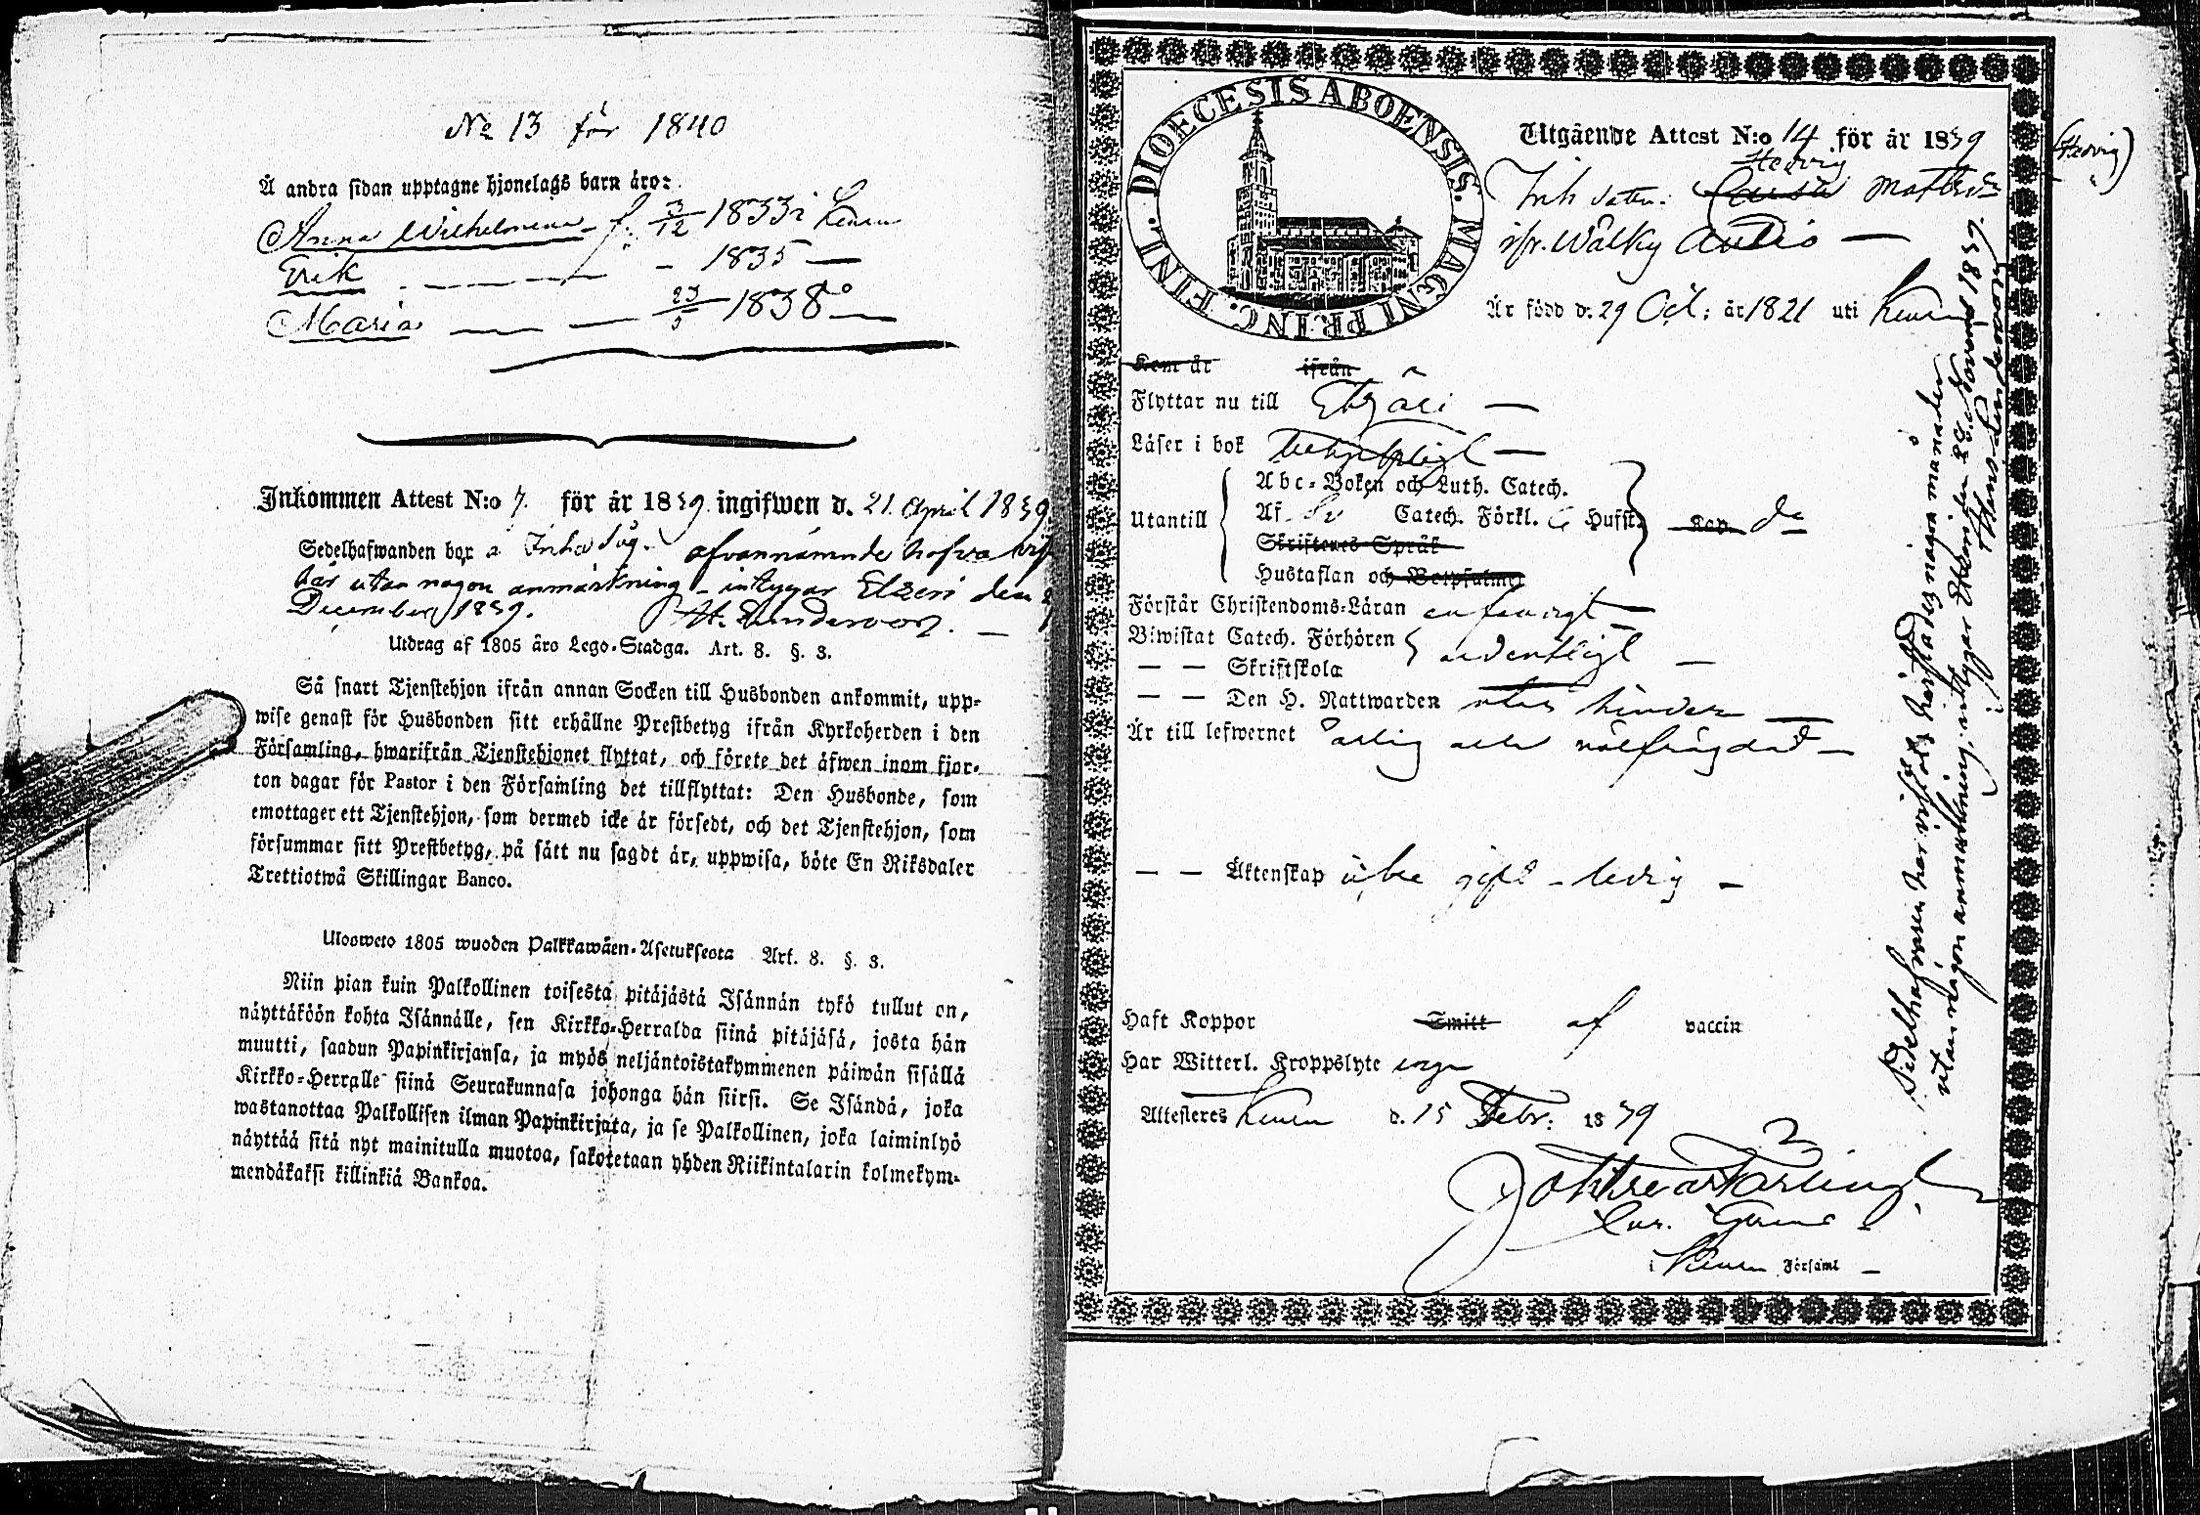 No 13 för 1840
Å andra sidan upptagne hjonelags barn äro:
Anna Wilhelmina f. 3/12 1833 i Keuru
Erik — 1835 —
Maria — 23/5 1838 —
Inkommen Attest N:o 7. för år 1839 ingifwen d. 21 April 1839
Sedelhafwanden bor å Inha afvannämnde
här utan någon anmärkning - intygar Etzeri den
December 1839.
Utdrag af 1805 års Lego-Stadga. Art. 8. §. 3.
Så snart Tjenstehjon ifrån annan Socken till Husbonden ankommit, upp-
wise genast för Husbonden sitt erhållne Prestbetyg ifrån Kyrkoherden i den
Församling, hwarifrån Tjenstehjonet flyttat, och förete det äfwen inom fjor-
ton dagar för Pastor i den Församling det tillflyttat: Den Husbonde, som
emottager ett Tjenstehjon, som dermed icke är försedt, och det Tjenstehjon, som
försummar sitt Prestbetyg, på sätt nu sagdt är, uppwisa, böte En Riksdaler
Trettiotwå Skillingar Banco.
Ulosweto 1805 wuoden Palkkawäen-Asetuksesta Art. 8. §. 3.
Niin pian kuin Palkollinen toisesta pitäjästä Isännän tykö tullut on,
näyttäköön kohta Isännälle, sen Kirkko-Herralda siinä pitäjäsä, josta hän
muutti, saadun Papinkirjansa, ja myös neljäntoistakymmenen päiwän sisällä
Kirkko-Herralle siinä Seurakunnasa johonga hän siirsi. Se Isändä, joka
wastanottaa Palkollisen ilman Papinkirjata, ja se Palkollinen, joka laiminlyö
näyttää sitä nyt mainitulla muotoa, sakotetaan yhden Riikintalarin kolmekym-
mendäkaksi killinkiä Bankoa.
DIOECESIS ABOENSIS. MAGNI PRINC. FINL.
Utgående Attest N:o 14 för år 1839
Hedvig (Hedvig)
Caisa Mattsdr
ifr. Wälky Autio —
Är född d. 29 Oct: år 1821 uti Keuru
Kom år ifrån
Flyttar nu till Etzäri —
Läser i bok behjelpligt —
Utantill
Abc-Boken och Luth. Catech.
Af Sv Catech. Förkl. 6 Hufst. Kap. do
Skriftenes Språk
Hustaflan och Botpsalmer
Förstår Christendoms-Läran enfaldigt —
Biwistat Catech. Förhören ordentligt —
— — Skriftskola
— — Den H. Nattwarden utan hinder —
Är till lefwernet ärlig och wälfrägdad —
— — Äktenskap icke gift - ledig —
Haft Koppor Smitt af vaccin
Har Witterl. Kroppslyte inga
Attesteres Keuru d. 15 Febr. 1839
i Keuru Församl —
Sedelhafvaren har vistats härstädes några månader
utan någon anmärkning, intygar Etseri den 28 Novemb 1839.